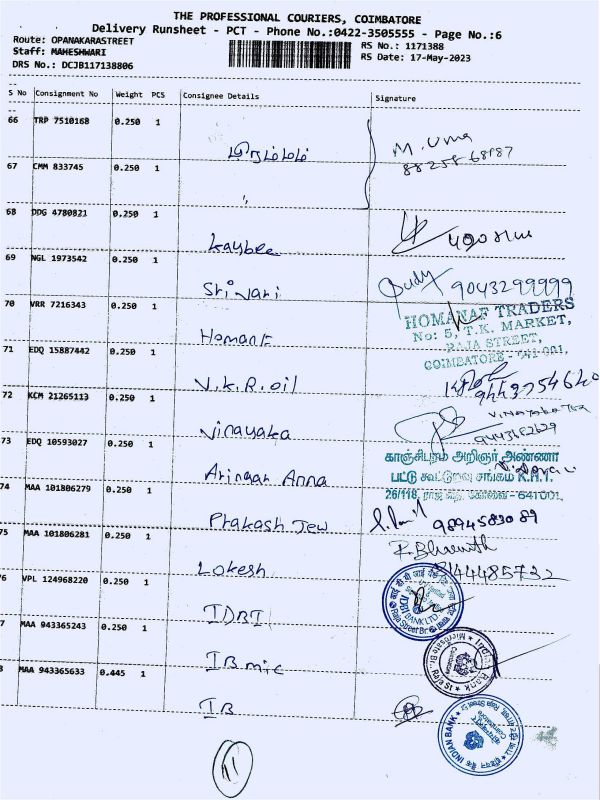 THE PROFESSIONAL COURIERS, COIMBATORE
Delivery Runsheet - PCT - Phone No.:0422-3505555 - Page No.:6
Route: OPANAKARASTREET
RS No.: 1171388
Staff: MAHESHWARI
RS Date: 17-May-2023
DRS No.: DCJB117138806
S No Consignment No Weight PCS Consignee Details Signature
66 TRP 7510168 0.250 1
M. Uma
67 CMM 833745 0.250 1 "
68 DDG 4780821 0.250 1
Kaybee
69 NGL 1973542 0.250 1
Srivari 9043299999
70 VRR 7216343 0.250 1
Homanaf
HOMANAF TRADERS
No: 5, T.K. MARKET,
RAJA STREET,
COIMBATORE - 641 001.
71 EDQ 15887442 0.250 1
V.K.R. oil 9443754640
72 KCM 21265113 0.250 1
Vinayaka
9443682629
73 EDQ 10593027 0.250 1
Arinaar Anna
காஞ்சிபுரம் அறிஞர் அண்ணா
பட்டு கூட்டுறவு சங்கம் K.A.T.
26/118, ராஜ வீதி, கோவை - 641001.
74 MAA 101806279 0.250 1
Prakash Jew 9894583089
75 MAA 101806281 0.250 1
Lokesh
R. Bharath
76 VPL 124968220 0.250 1
IDBI
IDBI BANK LTD.
Raja Street Br.
7 MAA 943365243 0.250 1
IB mic
Indian Bank
Microsate Br., Raja St
Coimbatore
8 MAA 943365633 0.445 1
IB
INDIAN BANK
Raja Street
Coimbatore